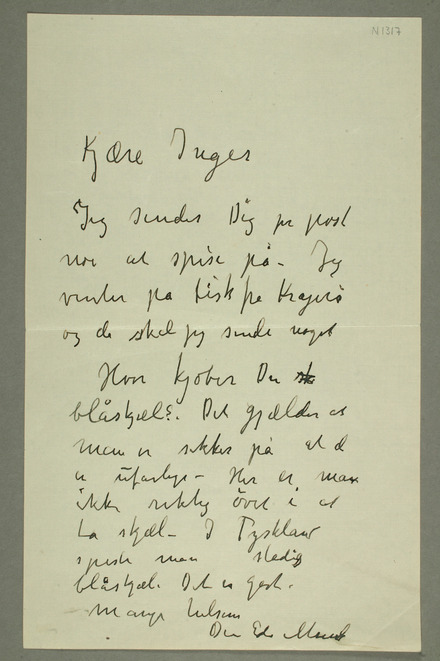 N 1317
Kjære Inger
Jeg sender Dig pr post
noe at spise på – Jeg
venter på fisk fra Kragerø
og da skal jeg sende noget
Hvor kjøber Du
blåskjæl?. Det gjælder at
man er sikker på at d
er ufarlige – Her er man
ikke riktig øvet i at
ta skjæl – I Tyskland
spiste man stadig
blåskjæl. Det er godt.
Mange hilsen
Din Edv Munch